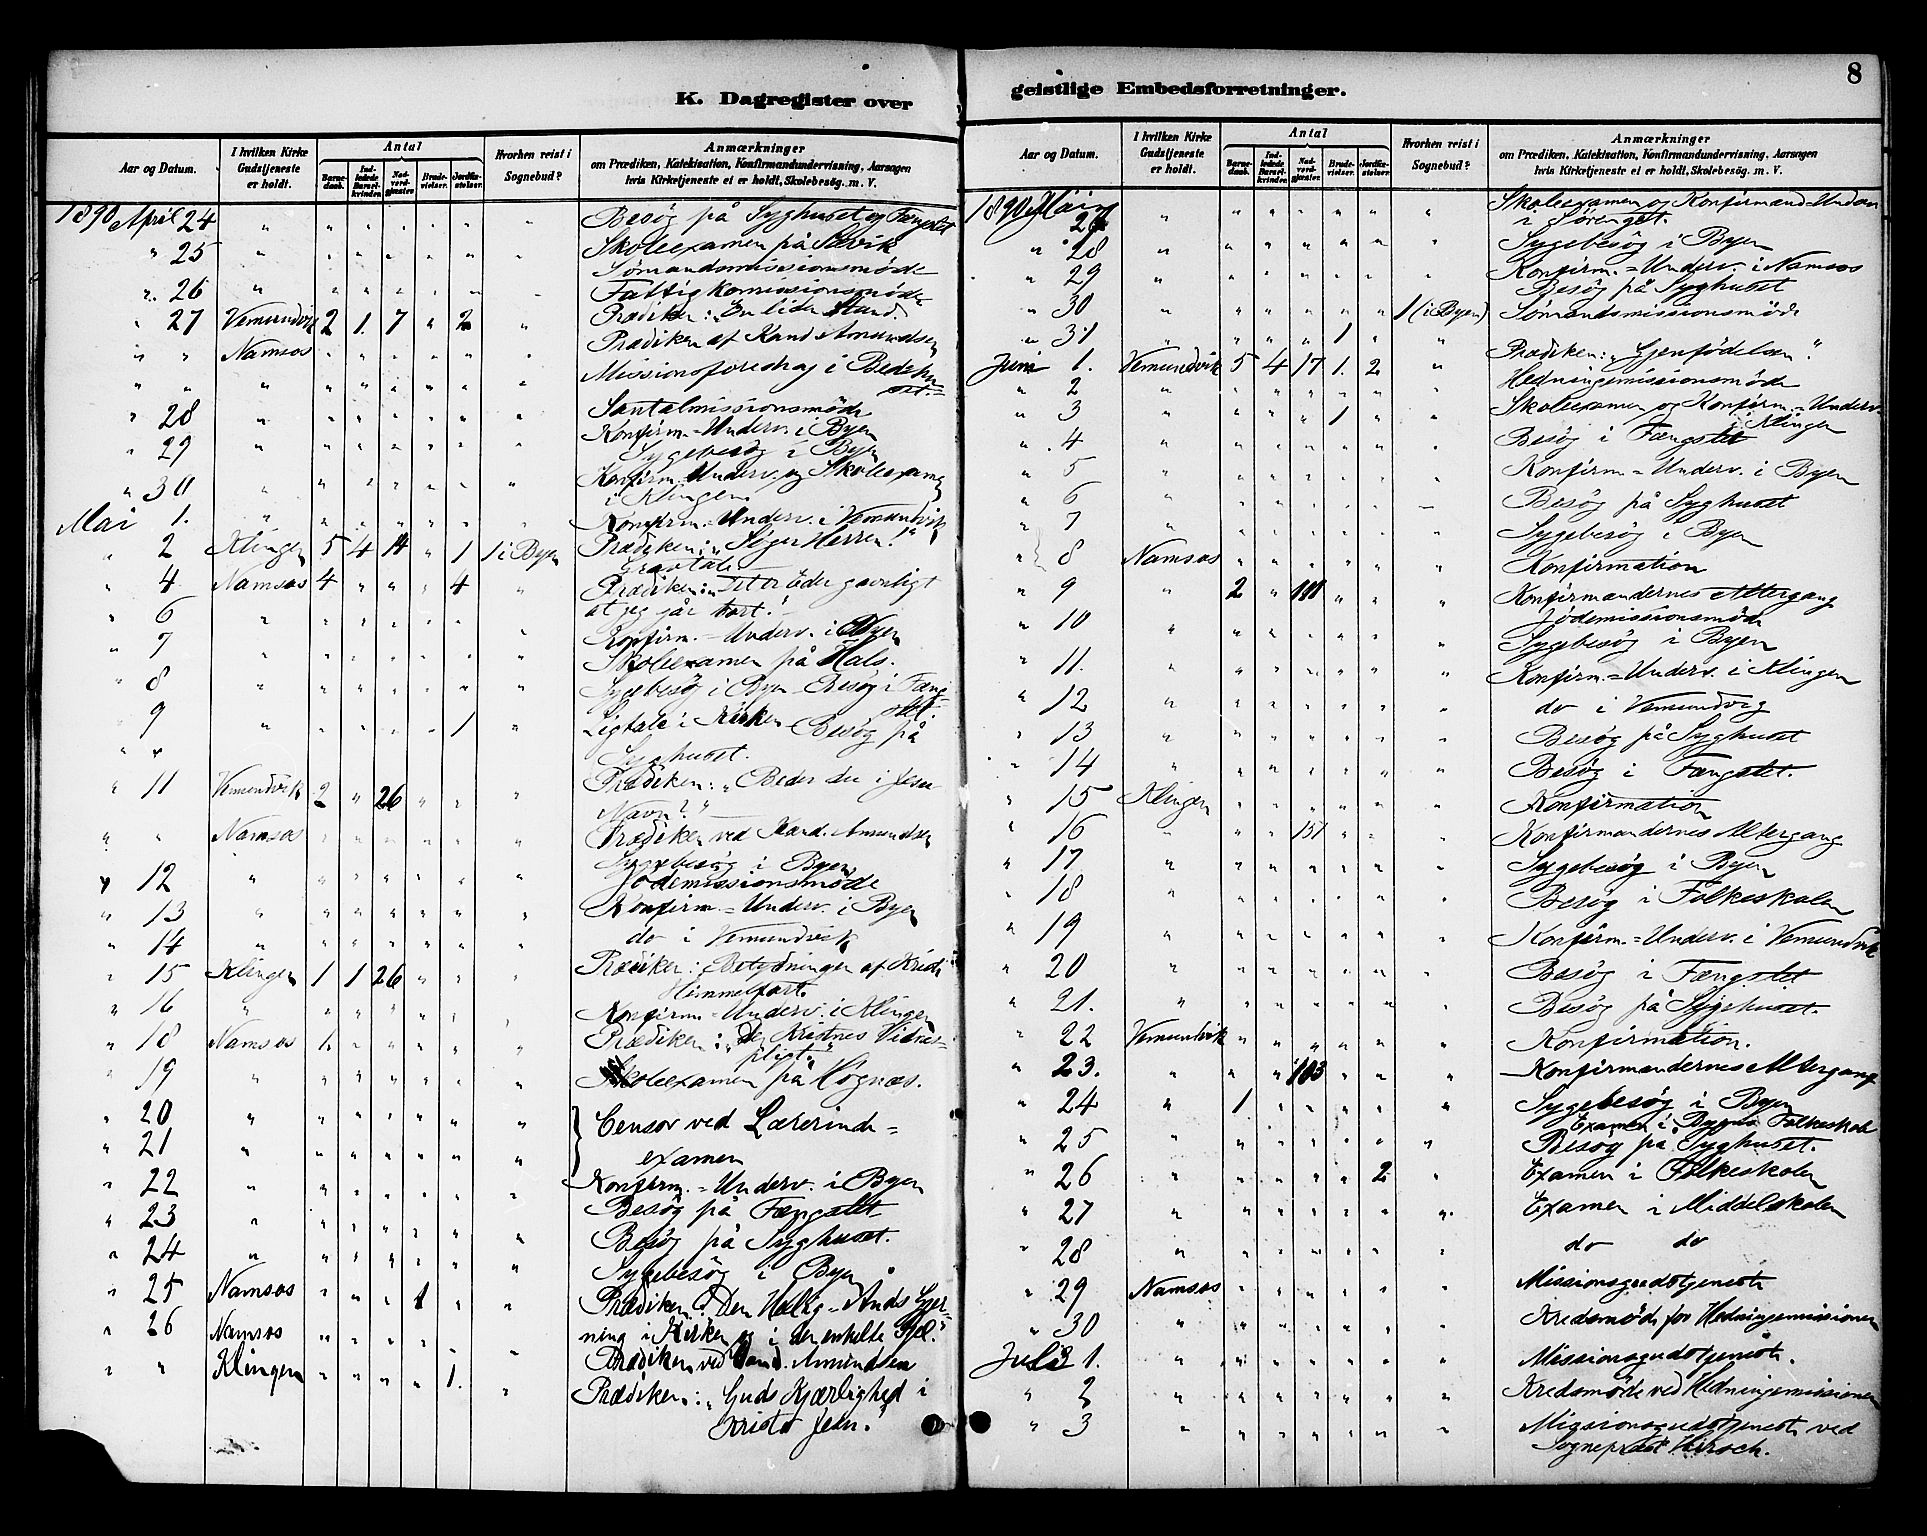 8
K. Dagregister over
geistlige Embedsforretninger.
Aar og Datum.
I hvilken Kirke Gudstjeneste er holdt.
Antal
Barnedaab.
Indledede Barselkvinder.
Nadverdgjester.
Brudevielser.
Jordfæstelser.
Hvorhen reist i Sognebud?
Anmærkninger
om Prædiken, Katekisation, Konfirmandundervisning, Aarsagen
hvis Kirketjeneste ei er holdt, Skolebesøg. m. V.
1890 April 24 " " " " " " " Besøg på Syghuset og Fængslet
" 25 " " " " " " " Skoleexamen på
Sømandsmissionsmøde
" 26 " " " " " " " Fattigkommissionsmøde
" 27 Vemundvik 2 1. 7 " 2 " Prædiken: "En liden Stund"
" " Namsos " " " " " " Prædiken af Kand. Amundsen
" " " " " " " " " Missionsforedrag i Bedehuset.
" 28 " " " " " " " Santalmissionsmøde
Konfirm.-Underv. i Byen
" 29 " " " " " " " Sygebesøg i Byen
" 30 " " " " " " " Konfirm.-Underv. og Skoleexamen
i Klingen.
Mai 1. " " " " " " " Konfirm.-Underv. i Vemundvik
" 2 Klingen 5 4 14 " 1 1 i Byen Prædiken: "Søger Herren!"
Gravtale
" 4 Namsos 4 " " " 4 " Prædiken: "Det er Eder gavnligt
at jeg går bort!
" 6 " " " " " " " Konfirm.-Underv. i Byen
" 7 " " " " " " " Skoleexamen på Hals.
" 8 " " " " " " " Sygebesøg i Byen Besøg i Fængslet.
" 9 " " " " " 1 " Ligtale i Kirken Besøg på
" " Syghuset.
" 11 Vemundvik 2 " 26 " " " Prædiken: "Beder du i Jesu
Navn?"
" " Namsos " " " " " " Prædiken ved Kand. Amundsen
Sygebesøg i Byen
" 12 " " " " " " " Jødemissionsmøde
" 13 " " " " " " " Konfirm.-Underv. i Byen
" 14 " " " " " " " do i Vemundvik
" 15 Klingen 1 1 26 " " " Prædiken: Betydningen af Kristi
Himmelfart.
" 16 " " " " " " " Konfirm.-Underv. i Klingen
" 18 Namsos 1. " " " " " Prædiken: "De Kristnes Vidnespligt."
" 19 " " " " " " " Skoleexamen på Høgnæs.
" 20 " " " " " " " Censor ved Lærerinde-
" 21 " " " " " " " examen
" 22 " " " " " " " Konfirm.-Underv. i Byen
" 23 " " " " " " " Besøg på Fængslet
" 24 " " " " " " " Besøg på Syghuset.
Sygebesøg i Byen
" 25 Namsos " " " 1 " " Prædiken: Den Hellig-Ands Gjerning
i Kirken og i den enkelte Sjel."
" 26 Namsos " " " " " " Prædiken ved Cand. Amundsen
" " Klingen " " " " 1. " Prædiken: "Guds Kjærlighed i
Kristo Jesu."
Aar og Datum.
I hvilken Kirke Gudstjeneste er holdt.
Antal
Barnedaab.
Indledede Barselkvinder.
Nadverdgjester.
Brudevielser.
Jordfæstelser.
Hvorhen reist i Sognebud?
Anmærkninger
om Prædiken, Katekisation, Konfirmandundervisning, Aarsagen
hvis Kirketjeneste ei er holdt, Skolebesøg. m. V.
1890 Mai " " " " " " " Skoleexamen og Konfirmand-Underv.
i Sørenget.
" 28 " " " " " " " Sygebesøg i Byen
" 29 " " " " " " " Konfirm.-Underv. i Namsos
Besøg på Syghuset
" 30 " " " " " " 1 (i Byen) Sømandsmissionsmøde
" 31 " " " " 1 " "
Juni 1. Vemundvik 5 4 17 1. 2 " Prædiken: "Gjenfødelsen".
" 2 " " " " " " " Hedningemissionsmøde
" 3 " " " " 1 " " Skoleexamen og Konfirm.-Underv.
i Klingen
" 4 " " " " " " " Besøg i Fængslet
" 5 " " " " " " " Konfirm.-Underv. i Byen
" 6 " " " " " " " Besøg på Syghuset
" 7 " " " " " " " Sygebesøg i Byen
" 8 Namsos " " " " " " Konfirmation
" 9 " 2 " " " " Konfirmandernes Altergang
Jødemissionsmøde
" 10 " " " " " " " Sygebesøg i Byen
" 11. " " " " " " " Konfirm.-Underv. i Klingen
" 12 " " " " " " " do i Vemundvig
" 13 " " " " " " " Besøg på Syghuset
" 14 " " " " " " " Besøg i Fængslet.
" 15 Klingen " " " " " " Konfirmation
" 16 " " " 151 " " " Konfirmandernes Altergang
" 17 " " " " " " " Sygebesøg i Byen
" 18 " " " " " " " Besøg i Folkeskolen
" 19 " " " " " " " Konfirm.-Underv. i Vemundvik
" 20 " " " " " " " Besøg i Fængslet
" 21. " " " " " " " Besøg på Sygehuset.
" 22 Vemundvik " " " " " " Konfirmation.
" 23. " " " 103 " " " Konfirmandernes Altergang
" 24 " 1 " " " " " Sygebesøg i Byen
Examen i Byens Folkeskole
" 25 " " " " " " " Besøg på Syghuset.
" 26 " " " " " 2 " Examen i Folkeskolen
" 27 " " " " " " " Examen i Middelskolen
" 28 " " " " " " " do do
" 29 Namsos " " " " " " Missionsgudstjeneste
" 30 " " " " " " " Kredsmøde for Hedningemissionen
Juli 1. " " " " " " " Missionsgudstjeneste.
" 2 " " " " " " " Kredsmøde ved Hedningemissionen
" 3 " " " " " " " Missionsgudstjeneste ved
Sogneprest Hirsch.